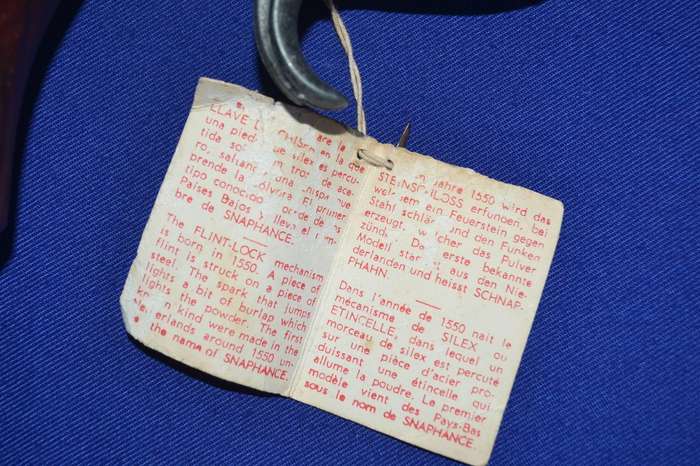 LLAVE DE CHISPA
en la que
una piedra que silex es percu-
tida so un trozo de ace-
ro, saltan una chispa que
prende la pólvora El primer
tipo conocido procede de
Países Bajos y lleva el nom-
bre de SNAPHANCE.
The FLINT-LOCK mechanism
is born in 1550. A piece of
flint is struck on a piece of
steal. The spark that jumps
lights a bit of burlap which
lights the powder. The first
known kind were made in the
Netherlands around 1550 un-
the name of SNAPHANCE.
Jahre 1550 wird das
STEINSCHLOSS erfunden, bei
welchem ein Feuerstein gegen
Stahl schlägt und den Funken
erzeugt, welcher das Pulver
zündet. Das erste bekannte
Modell stammt aus den Nie-
derlanden und heisst SCHNAP-
PHAHN.
Dans l'année de 1550 nait le
mécanisme de SILEX ou
ETINCELLE, dans lequel un
morceau de silex est percuté
sur une pièce d'acier pro-
duissant une étincelle qui
allume la poudre. La premier
modèle vient des Pays-Bas
sous le nom de SNAPHANCE.